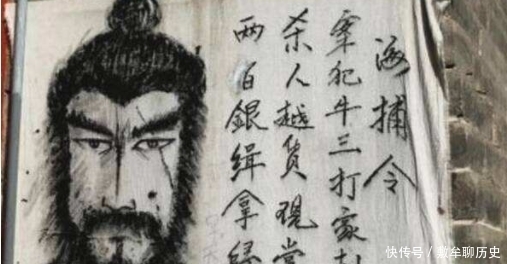 海捕令
罪犯牛三打家
杀人越货现赏
两百銀缉拿
快传号／数牟聊历史